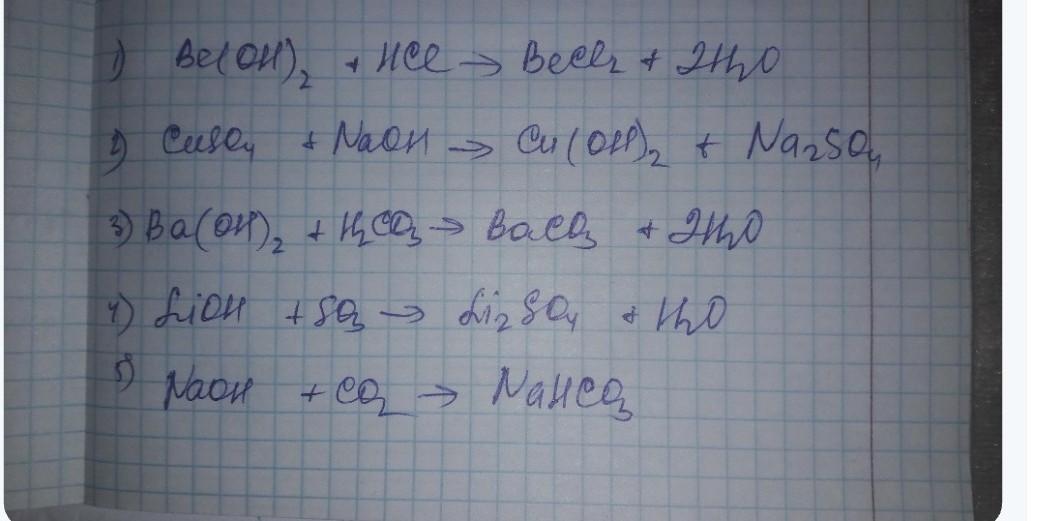 1) Be(OH)₂ + HCl → BeCl₂ + 2H₂O
2) CuSO₄ + NaOH → Cu(OH)₂ + Na₂SO₄
3) Ba(OH)₂ + H₂CO₃ → BaCO₃ + 2H₂O
4) LiOH + SO₃ → Li₂SO₄ + H₂O
5) NaOH + CO₂ → NaHCO₃